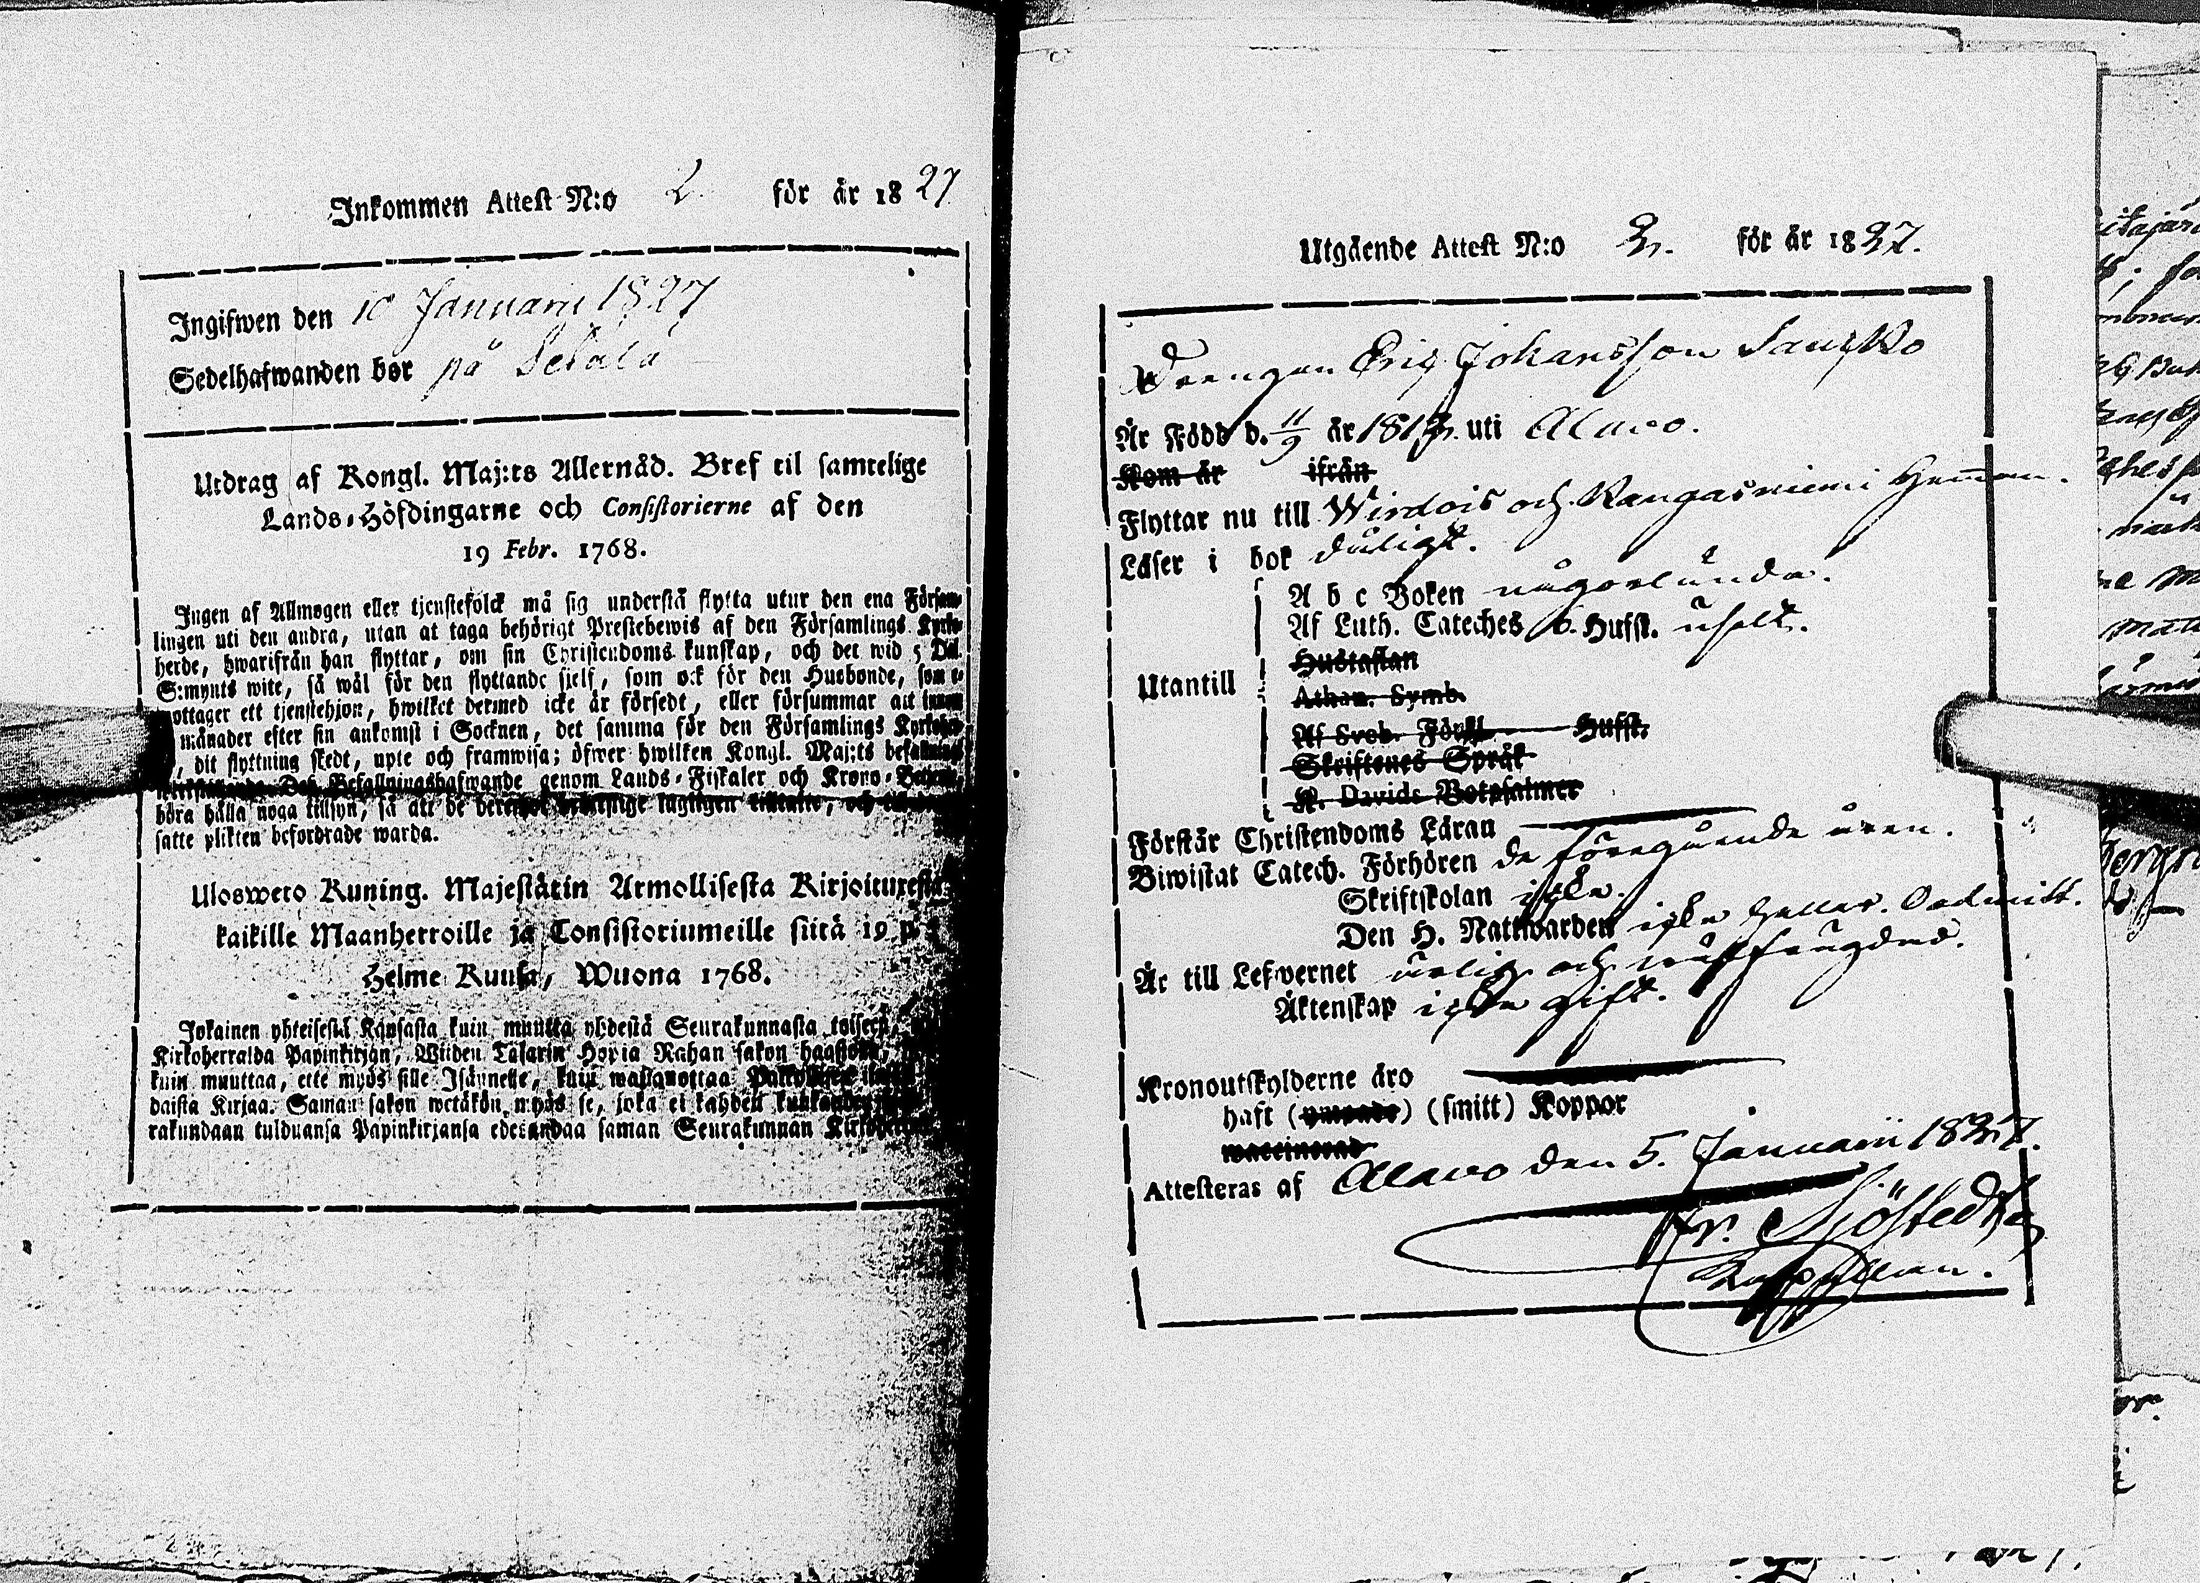 Inkommen Attest N:o 2. för år 1827
Ingifwen den 10 Januarii 1827
Sedelhafwanden bor på Setälä
Utdrag af Kongl. Maj:ts Allernåd. Bref til samtelige
Lands-Höfdingarne och Consistorierne af den
19 Febr. 1768.
Ingen af Allmogen eller tjenstefolck må sig understå flytta utur den ena Försam-
lingen uti den andra, utan at taga behörigt Prestebewis af den Församlings Kyrko-
herde, hwarifrån han flyttar, om sin Christendoms kunskap, och det wid 5 Dal.
S:mynts wite, så wäl för den flyttande sjelf, som ock för den Husbonde, som e-
mottager ett tjenstehjon, hwilket dermed icke är försedt, eller försummar att innom
månader efter sin ankomst i Socknen, det samma för den Församlings Kyrkoher-
, dit flyttning skedt, upte och framwisa; öfwer hwilken Kongl. Maj:ts befallning
Befallningshafwande genom Lands-Fiskaler och Krono-
böra hålla noga tillsyn, så att de lagligen tilltalte, och
satte plikten befordrade warda.
Ulosweto Kuning. Majestätin Armollisesta Kirjoituxesta
kaikille Maanherroille ja Consistoriumeille siitä 19 p.
Helme Kuusa, Wuona 1768.
Jokainen yhteisestä Kansasta kuin muutta yhdestä Seurakunnasta toiseen,
Kirkoherralda Papinkirjan, Wiiden Talarin Hopia Rahan sakon haastolla,
kuin muuttaa, ette myös sille Isännelle, kuin wastanottaa
daista Kirjaa. Saman sakon wetäkön myös se, joka ei kahden
rakundaan tulduansa Papinkirjansa edesandaa saman Seurakunnan
Utgående Attest N:o 2. för år 1827.
Drengen Eric Johansson Saukko
Är Född d. 11/9 år 1812. uti Alavo.
Kom år ifrån
Flyttar nu till Wirdois och Kangasniemi Hemman.
Läser i bok dåligt.
A b c Boken någorlunda.
Af Luth. Cateches 6. Hufst. uselt.
Utantill
Hustaflan
Athan. Symb.
Af Sveb. Förkl. Hufst.
Skriftenes Språk
K. Davids Botpsalmer
Förstår Christendoms Läran
Biwistat Catech. Förhören de föregående åren.
Skriftskolan icke.
Den H. Nattwarden icke heller. Oadmitt.
Är till Lefwernet ärlig och
Äktenskap icke gift.
Kronoutskylderne äro
haft (ympade) (smitt) Koppor
waccinerad
Attesteras af Alavo den 5. Januarii 1827.
Fr. Sjöstedt
Kappellan.